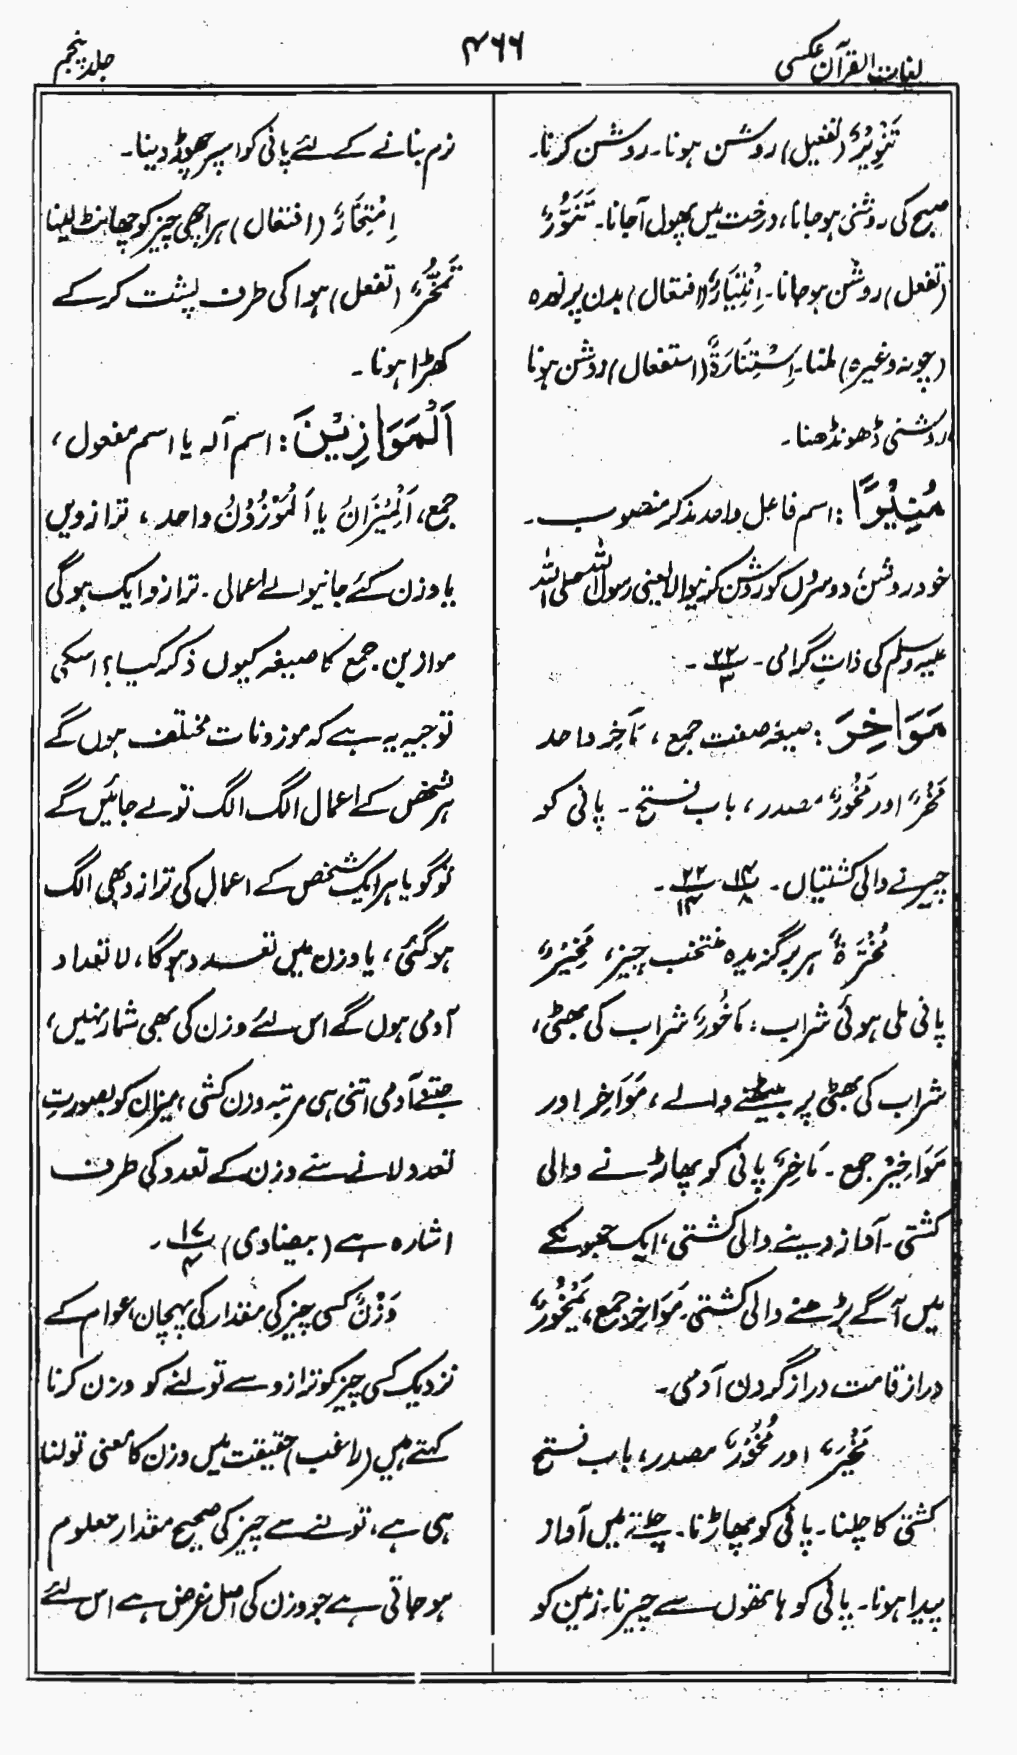 لغات القرآن عکسی
۴۶۶
جلد پنجم
تَنْوِیْرٌ (تفعیل) روشن ہونا۔ روشن کرنا۔
صبح کی روشنی ہوجانا، درخت میں پھول آجانا۔ تَنَوُّرٌ
(تفعل) روشن ہوجانا۔ اِنْتِیَارٌ (افتعال) بدن پر نورہ
(چونہ وغیرہ) ملنا۔ اِسْتِنَارَۃٌ (استفعال) روشن ہونا
روشنی ڈھونڈھنا۔
مُنِیْرًا: اسم فاعل واحد مذکر منصوب۔
خود روشن، دوسروں کو روشن کرنیوالا یعنی رسول اللہ صلی اللہ
علیہ وسلم کی ذات گرامی۔ ۲۲/۳ ۔
مَوَاخِرَ: صیغہ صفت جمع، مَاخِر واحد
مَخْرٌ اور مُخُوْرٌ مصدر، باب فتح۔ پانی کو
چیرنے والی کشتیاں۔ ۱۴/۸ ۲۲/۱۴ ۔
مُخْرَۃٌ ہر برگزیدہ منتخب چیز، مَخِیْرٌ
پانی ملی ہوئی شراب، مَاخُوْرٌ شراب کی بھٹی،
شراب کی بھٹی پر بیٹھنے والے، مَوَاخِر اور
مَوَاخِیْر جمع۔ مَاخِرٌ پانی کو پھاڑنے والی
کشتی۔ آواز دینے والی کشتی، ایک جھونکے
میں آگے بڑھنے والی کشتی، مَوَاخِر جمع، یَمْخُوْرٌ
دراز قامت دراز گردن آدمی۔
مَخْرٌ اور مُخُوْرٌ مصدر، باب فتح
کشتی کا چلنا۔ پانی کو پھاڑنا۔ چلنے میں آواز
پیدا ہونا۔ پانی کو ہاتھوں سے چیرنا۔ زمین کو
نرم بنانے کے لئے پانی کو اسپر چھوڑ دینا۔
اِمْتِخَارٌ (افتعال) ہر اچھی چیز کو چھانٹ لینا
تَمَخُّرٌ (تفعل) ہوا کی طرف پشت کرکے
کھڑا ہونا۔
اَلْمَوَازِیْنَ: اسم آلہ یا اسم مفعول،
جمع، اَلْمِیْزَانُ یا اَلْمَوْزُوْنُ واحد، ترازویں
یا وزن کئے جانیوالے اعمال۔ ترازو ایک ہوگی
موازین جمع کا صیغہ کیوں ذکر کیا؟ اسکی
توجیہ یہ ہے کہ موزونات مختلف ہوں گے
ہر شخص کے اعمال الگ الگ تولے جائیں گے
تو گویا ہر ایک شخص کے اعمال کی ترازو بھی الگ
ہوگئی، یا وزن میں تعدد ہوگا، لاتعداد
آدمی ہوں گے اس لئے وزن کی بھی شمار نہیں،
جتنے آدمی اتنی ہی مرتبہ وزن کشی، میزان کو بصورتِ
تعدد لانے سے وزن کے تعدد کی طرف
اشارہ ہے (بیضاوی) ۱۷/۴ ۔
وَزْنٌ کسی چیز کی مقدار کی پہچان، عوام کے
نزدیک کسی چیز کو ترازو سے تولنے کو وزن کرنا
کہتے ہیں (راغب) حقیقت میں وزن کا معنی تولنا
ہی ہے، تولنے سے چیز کی صحیح مقدار معلوم
ہوجاتی ہے جو وزن کی اصل غرض ہے اس لئے